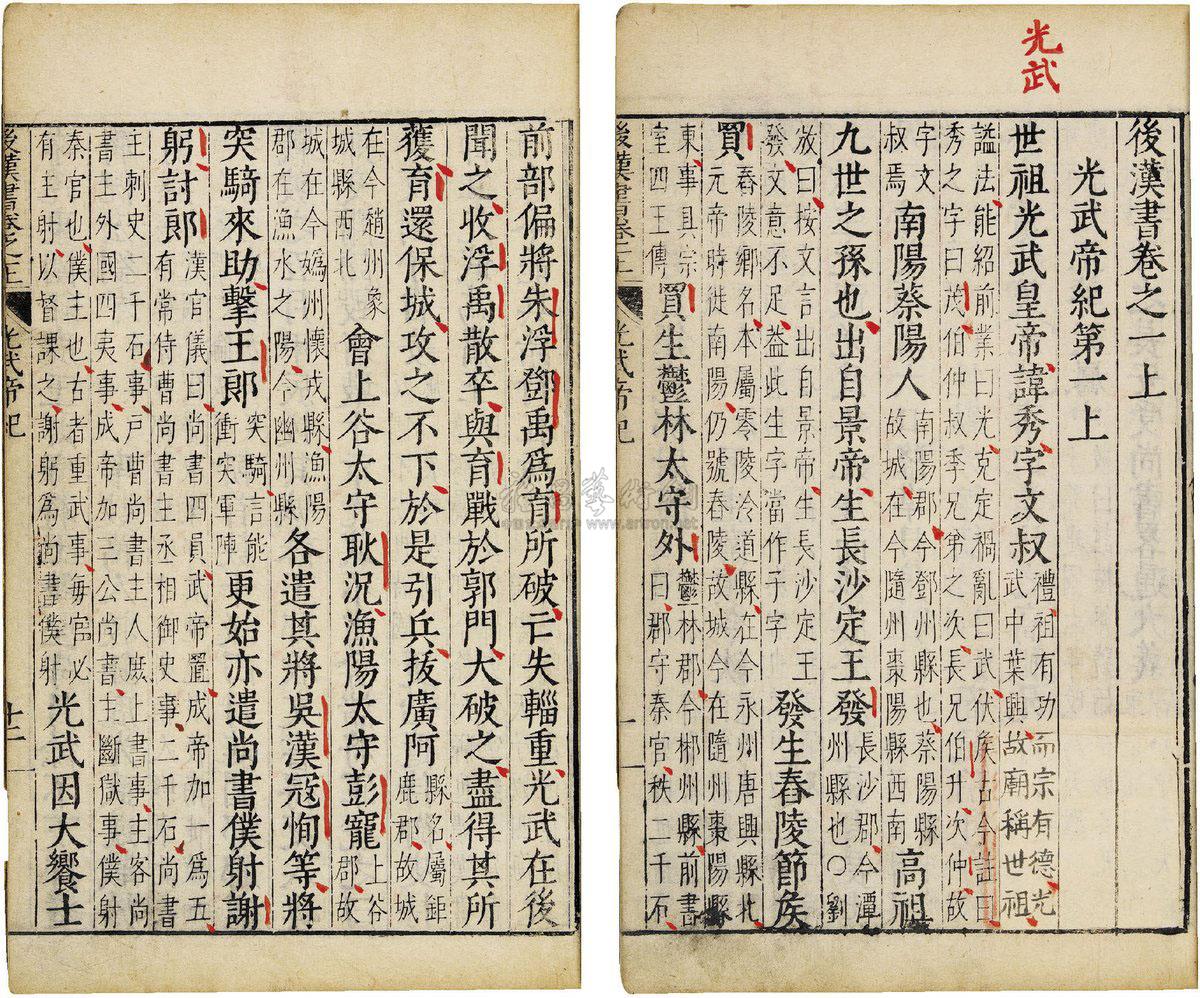 光武
後漢書卷之一上
光武帝紀第一上
世祖光武皇帝諱秀字文叔
禮祖有功而宗有德光
武中葉興故廟稱世祖
諡法能紹前業曰光克定禍亂曰武伏侯古今註曰
秀之字曰茂伯仲叔季兄弟之次長兄伯升次仲故
字文
叔焉
南陽蔡陽人
南陽郡今鄧州縣也蔡陽縣
故城在今隨州棗陽縣西南
高祖
九世之孫也出自景帝生長沙定王發
長沙郡今潭
州縣也○劉
攽曰按文言出自景帝生長沙定王
發文意不足益此生字當作子字
發生舂陵節侯
買
舂陵鄉名本屬零陵泠道縣在今永州唐興縣北
元帝時徙南陽仍號舂陵故城今在隨州棗陽縣
東事具宗
室四王傳
買生鬱林太守外
鬱林郡今郴州縣前書
曰郡守秦官秩二千石
後漢書卷之一上 光武帝紀 一
前部偏將朱浮鄧禹爲育所破亡失輜重光武在後
聞之收浮禹散卒與育戰於郭門大破之盡得其所
獲育還保城攻之不下於是引兵拔廣阿
縣名屬鉅
鹿郡故城
在今趙州象
城縣西北
會上谷太守耿況漁陽太守彭寵
上谷
郡故
城在今嬀州懷戎縣漁陽
郡在漁水之陽今幽州縣
各遣其將吳漢寇恂等將
突騎來助擊王郎
突騎言能
衝突軍陣
更始亦遣尚書僕射謝
躬討郎
漢官儀曰尚書四員武帝置成帝加一爲五
有常侍曹尚書主丞相御史事二千石尚書
主刺史二千石事戶曹尚書主人庶上書事主客尚
書主外國四夷事成帝加三公尚書主斷獄事僕射
秦官也僕主也古者重武事每官必
有主射以督課之謝躬爲尚書僕射
光武因大饗士
後漢書卷之一上 光武帝紀 十二